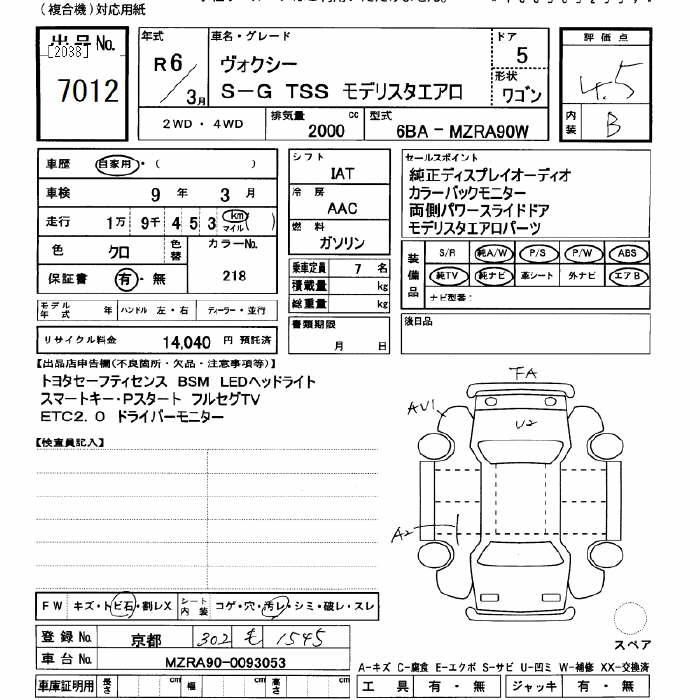 (複合機)対応用紙
出品No.
[2038]
7012
年式
R6/3月
車名・グレード
ヴォクシー
S-G TSS モデリスタエアロ
ドア
5
形状
ワゴン
評価点
4.5
内装
B
2WD・4WD
排気量
2000
cc
型式
6BA-MZRA90W
車歴
自家用・( )
車検
9年 3月
走行
1万 9千 4 5 3 km マイル ( )
色
クロ
色替
カラーNo.
218
保証書
有・無
モデル年式
年
ハンドル 左・右
ディーラー・並行
リサイクル料金
14,040 円 預託済
シフト
IAT
冷房
AAC
燃料
ガソリン
乗車定員 7 名
積載量 kg
総重量 kg
書類期限
月 日
セールスポイント
純正ディスプレイオーディオ
カラーバックモニター
両側パワースライドドア
モデリスタエアロパーツ
装備品
S/R 純A/W P/S P/W ABS
純TV 純ナビ 革シート 外ナビ エアB
ナビ型番:
後日品
【出品店申告欄(不良箇所・欠品・注意事項等)】
トヨタセーフティセンス BSM LEDヘッドライト
スマートキー・Pスタート フルセグTV
ETC2.0 ドライバーモニター
【検査員記入】
FA
AU1
U2
A2
スペア
FW キズ・トビ石・割レX
シート内装 コゲ・穴・汚レ・シミ・破レ・スレ
登録No. 京都 302 も 1545
車台No. MZRA90-0093053
車庫証明用 長さ cm 幅 cm 高さ cm
A-キズ C-腐食 E-エクボ S-サビ U-凹ミ W-補修 XX-交換済
工具 有・無 ジャッキ 有・無